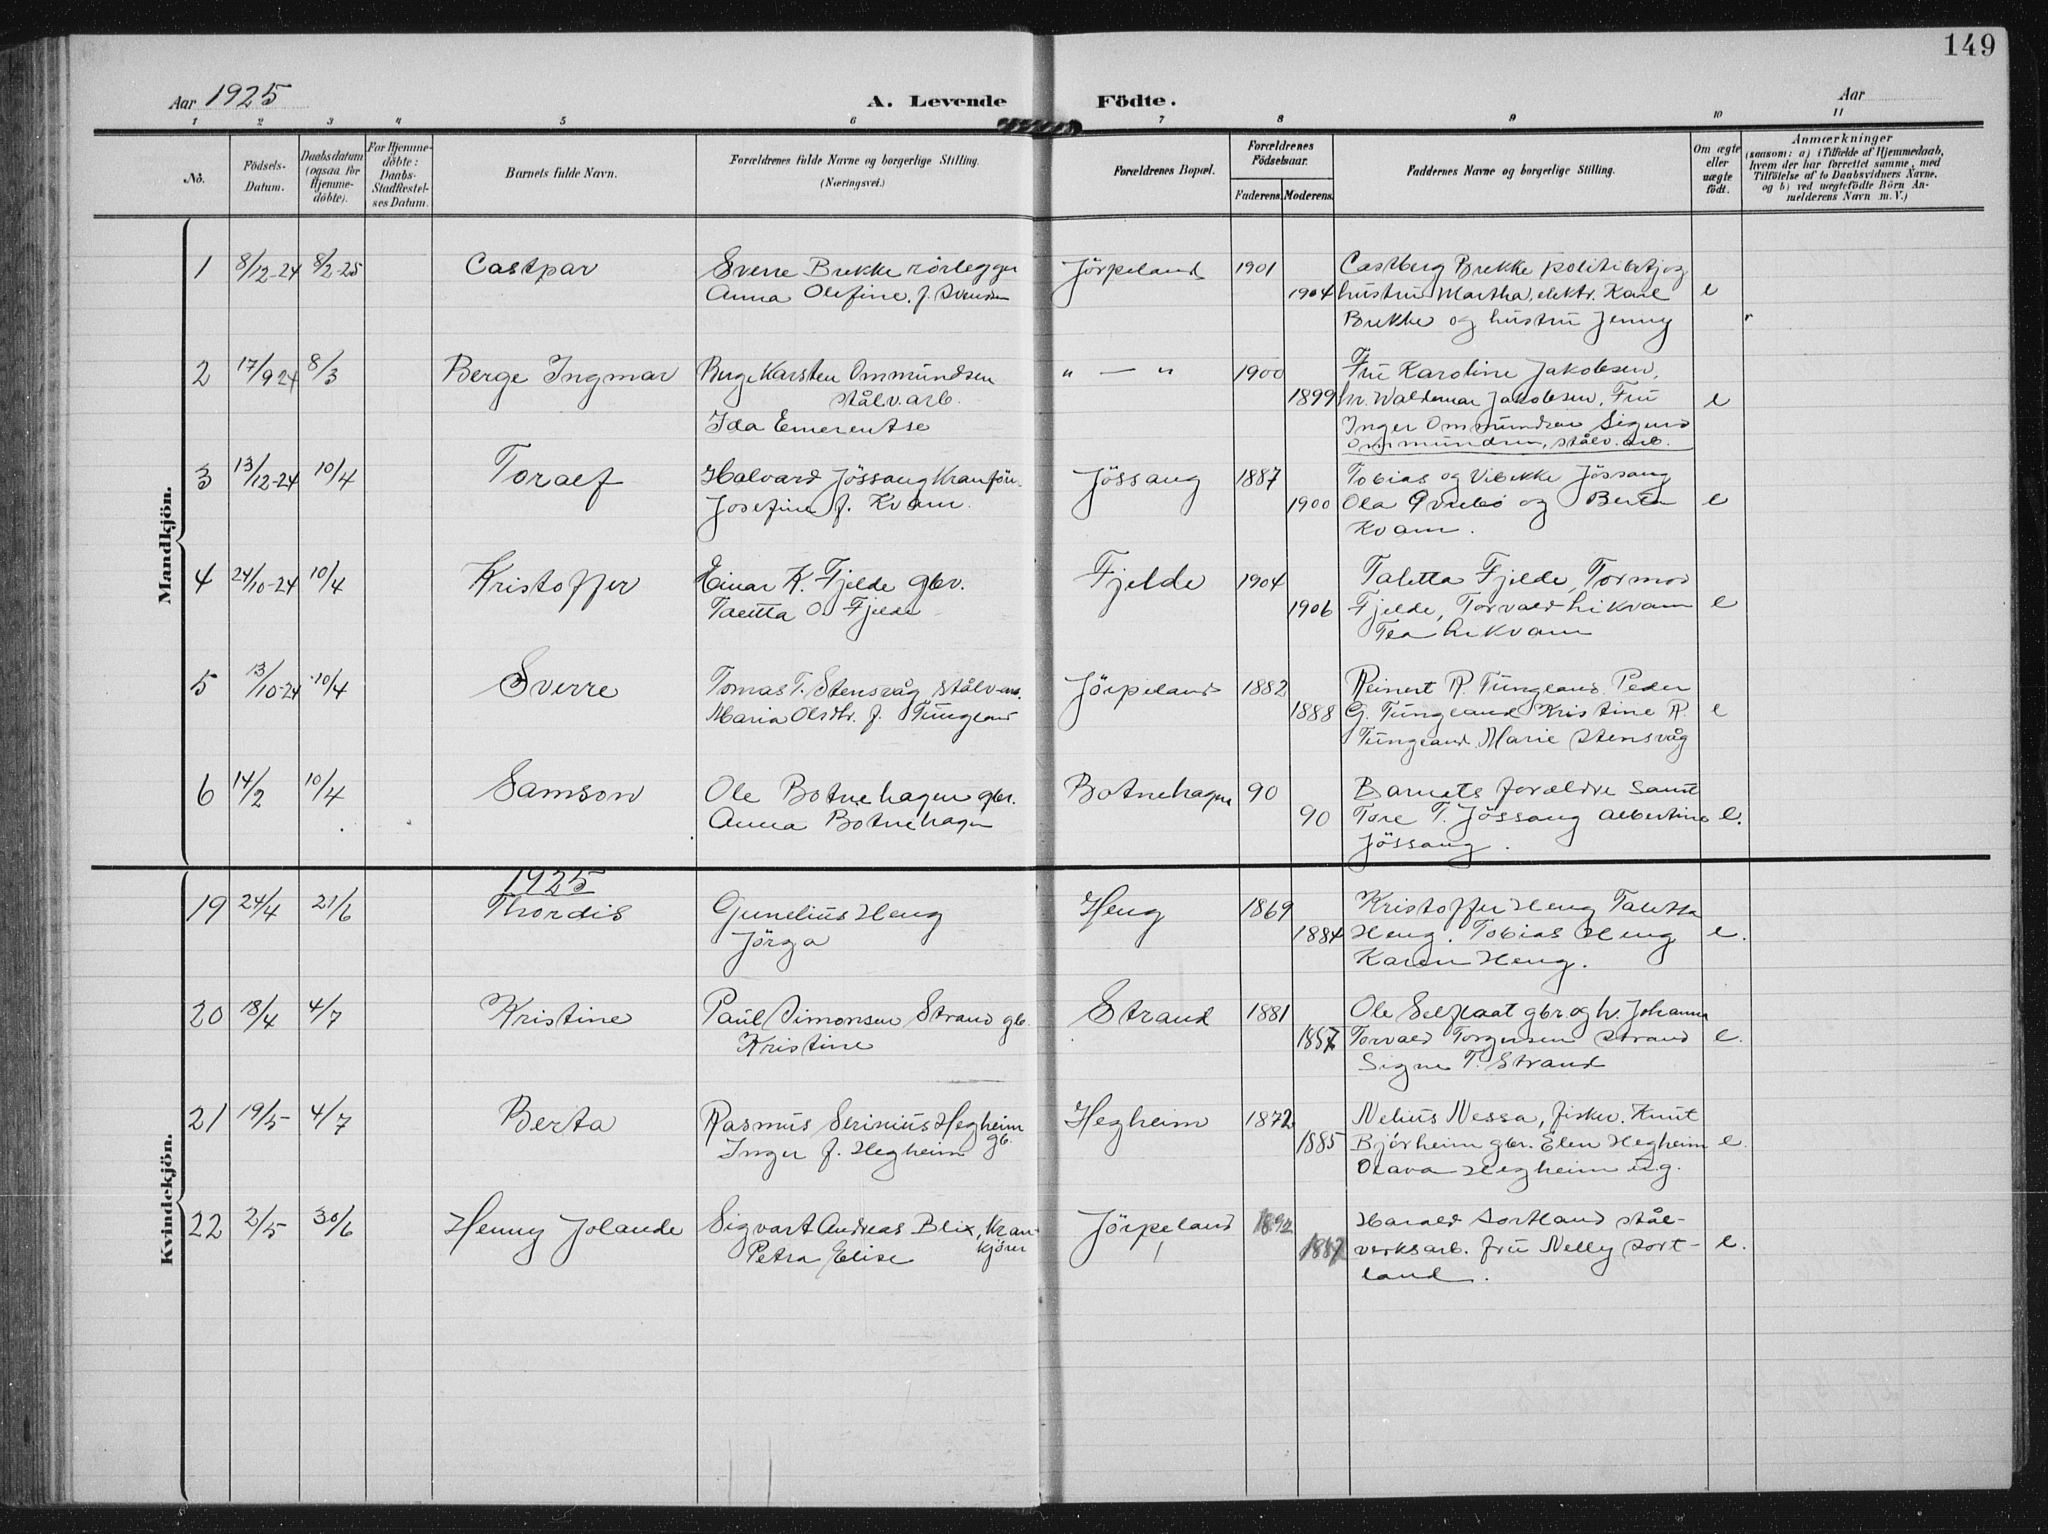 149
Aar 1925
A. Levende Födte.
Aar
1 2 3 4 5 6 7 8 9 10 11
No.
Födsels-Datum.
Daabsdatum (ogsaa for Hjemmedöbte).
For Hjemmedöbte: Daabs-Stadfæstelses Datum.
Barnets fulde Navn.
Forældrenes fulde Navne og borgerlige Stilling. (Næringsvei.)
Forældrenes Bopæl.
Forældrenes Födselsaar.
Faderens. Moderens.
Faddernes Navne og borgerlige Stilling.
Om ægte eller uægte födt.
Anmærkninger
(saasom: a) i Tilfælde af Hjemmedaab,
hvem der har forrettet samme, med
Tilföielse af to Daabsvidners Navne,
og b) ved uægtefödte Börn Anmelderens Navn m. V.)
Mandkjön.
1 8/12-24 8/2-25 Castpar Sverre Brekke rörlegger Jörpeland 1901 Castberg Brekke politibetj og
Anna Olefine f. Svendsen 1904 hustru Martha, elektr. Karl e
Brekke og hustru Jenny
2 17/9 24 8/3 Berge Ingmar Berge Karsten Ommundsen " — " 1900 Fru Karoline Jakobsen,
stålv.arb. 1899 hr. Waldemar Jakobsen, Fru e
Ida Emerentse Inger Ommundsen Sigurd
Ommundsen, stålv. arb.
3 13/12-24 10/4 Toralf Halvard Jössang Kranför. Jössang 1887 Tobias og Vibekke Jössang
Josefine f. Kvam. 1900 Ola og Berta e
Kvam.
4 24/10-24 10/4 Kristoffer Einar K. Fjelde gbr. Fjelde 1904 Taletta Fjelde, Tormod
Taletta O. Fjelde 1906 Fjelde, Torvald Likvam e
Tea Likvam
5 13/10-24 10/4 Sverre Tomas T. Stensvåg stålv.arb. Jörpeland 1882 Reinert R. Tungland Peder
Maria Olsdtr. f. Tungland 1888 G. Tungland Kristine R. e
Tungland, Marie Stensvåg
6 14/2 10/4 Samson Ole Botnehagen gbr. Botnehagen 90 Barnets forældre samt
Anna Botnehagen 90 Tore T. Jössang Albertine e.
Jössang.
Kvindekjön.
1925
19 24/4 21/6 Thordis Gunelius Heng Heng 1869 Kristoffer Heng Taletta
Jörga 1884 Heng. Tobias Heng e.
Karen Heng.
20 18/4 4/7 Kristine Paul Simonsen Strand gb. Strand 1881 Ole Selflaat gbr og h. Johanna
Kristine Torvald Torgersen Strand e.
Signe T. Strand
21 19/5 4/7 Berta Rasmus Serinius Hegheim Hegheim 1872 Nelius Nessa, fisker. Knut
gb. Inger f. Hegheim 1885 Björheim gbr. Elen Hegheim e.
Olava Hegheim ug.
22 2/5 30/6 Henny Jolande Sigvart Andreas Blix, Kran- Jörpeland 1892 Harald Sortland stål-
kjörer Petra Elise 1887 verksarb. fru Nelly Sort- e.
land.